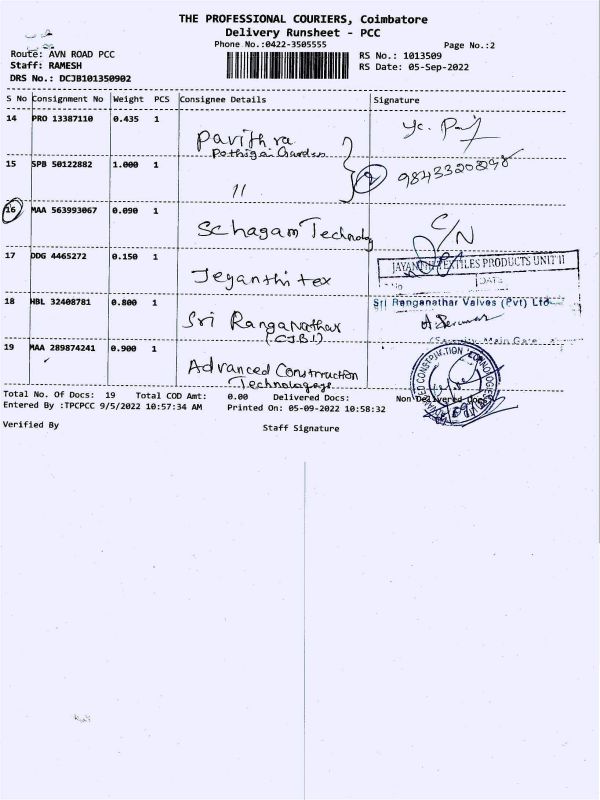 THE PROFESSIONAL COURIERS, Coimbatore
Delivery Runsheet - PCC
Phone No.:0422-3505555 Page No.:2
Route: AVN ROAD PCC RS No.: 1013509
Staff: RAMESH RS Date: 05-Sep-2022
DRS No.: DCJB101350902
S No Consignment No Weight PCS Consignee Details Signature
14 PRO 13387110 0.435 1 Pavithra
Pothigai Garden
15 SPB 50122882 1.000 1 11 2
16 MAA 563993067 0.090 1 Schagam Technology C/N
17 DDG 4465272 0.150 1 Jeyanthi tex
JAYANTHI TEXTILES PRODUCTS UNIT II
DATE
18 HBL 32408781 0.800 1 Sri Ranganathar
(CJB1)
Sri Ranganathar Valves (Pvt) Ltd
19 MAA 289874241 0.900 1 Advanced Construction
Technologys
Total No. Of Docs: 19 Total COD Amt: 0.00 Delivered Docs: Non Delivered Docs:
Entered By :TPCPCC 9/5/2022 10:57:34 AM Printed On: 05-09-2022 10:58:32
Verified By Staff Signature